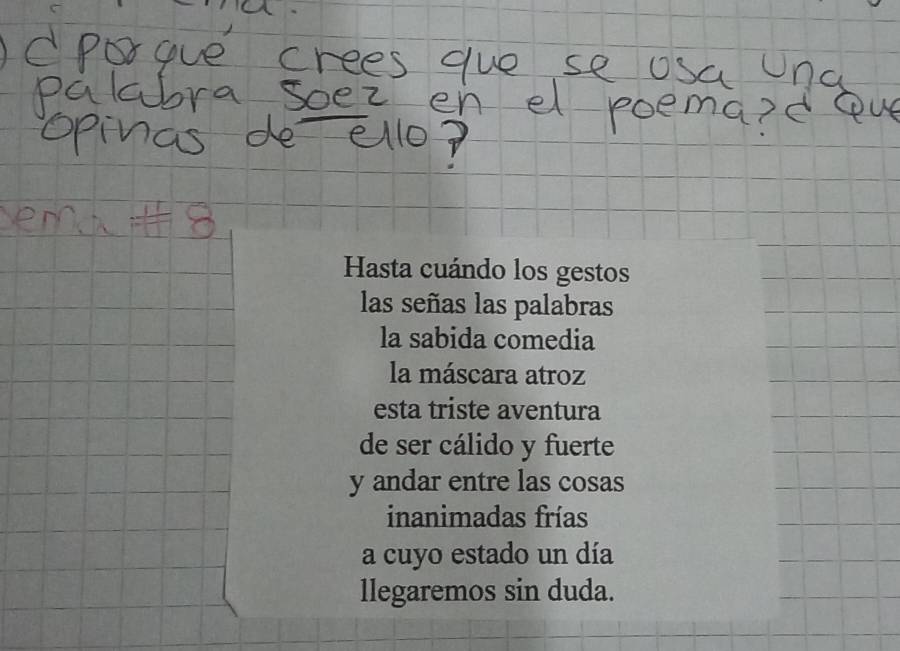 ¿Porqué crees que se usa una
palabra soez en el poema? ¿Que
opinas de ello?
#8
Hasta cuándo los gestos
las señas las palabras
la sabida comedia
la máscara atroz
esta triste aventura
de ser cálido y fuerte
y andar entre las cosas
inanimadas frías
a cuyo estado un día
llegaremos sin duda.